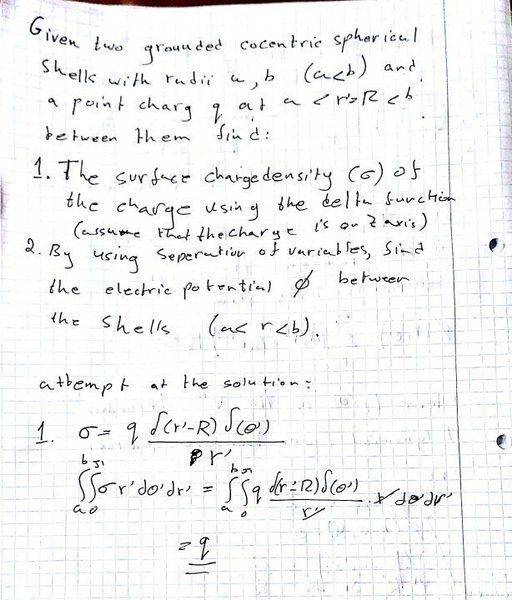 Given two grounded cocentric spherical
shells with radii a, b (a<b) and
a point charg q at a < r'=R < b
between them find:
1. The surface chargedensity (σ) of
the charge using the delta function
(assume that the charge is on Z axis)
2. By using seperation of variables, find
the electric potential ϕ between
the shells (a< r<b).
attempt at the solution:
1. σ = q δ(r'-R) δ(θ') / r'
∫_a^b ∫_0^π σ r' dθ' dr' = ∫_a^b ∫_0^π q δ(r'-R) δ(θ') / r' · r' dθ' dr'
= q